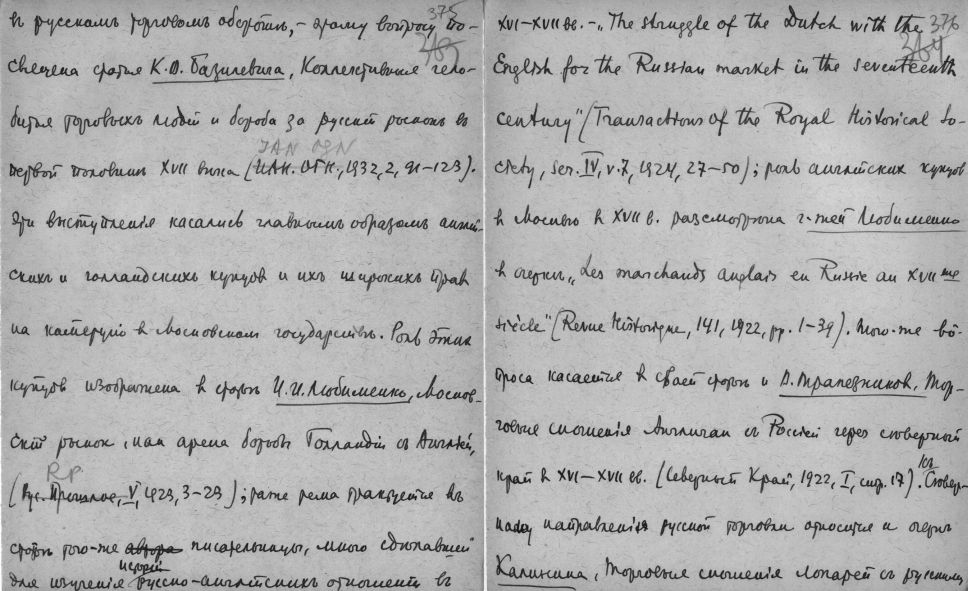 375
въ русскомъ торговомъ оборотѣ, – этому вопросу по-
263
священа статья К.В. Базилевича, Коллективныя чело-
битья торговыхъ людей и борьба за русскій рынокъ въ
ІАN OGN
первой половинѣ XVII вѣка (ИАН. ОГН., 1932, 2, 91–123).
Эти выступленія касались главнымъ образомъ англій-
скихъ и голландскихъ купцовъ и ихъ широкихъ правъ
на коммерцію въ Московскомъ государствѣ. Роль этихъ
купцовъ изображена въ статьѣ И.И. Любименко, Москов-
скій рынокъ, какъ арена борьбы Голландіи съ Англіей,
RP
(Рус. Прошлое, V, 1923, 3–23); таже тема трактуется въ
статьѣ того-же автора писательницы, много сдѣлавшей
исторіи
для изученія русско-англійскихъ отношеній въ
376
XVI–XVII вв. – „The struggle of the Dutch with the
264
English for the Russian market in the seventeenth
century" (Transactions of the Royal Historical So-
ciety, ser. IV, v. 7, 1924, 27–50); роль англійскихъ купцовъ
въ Москвѣ въ XVII в. разсмотрѣна г-жей Любименко
въ очеркѣ „Les marchands anglais en Russie au XVII me
siècle" (Revue Historique, 141, 1922, pp. 1–39). Того-же во-
проса касается въ своей статьѣ и В. Трапезниковъ, Тор-
говыя сношенія Англичан съ Россіей черезъ сѣверный
край въ XVI–XVII вв. (Северный Край, 1922, I, стр. 17). Къ Сѣвер-
ному направленію русской торговли относится и очеркъ
Калинина, Торговыя сношенія лопарей съ русскими